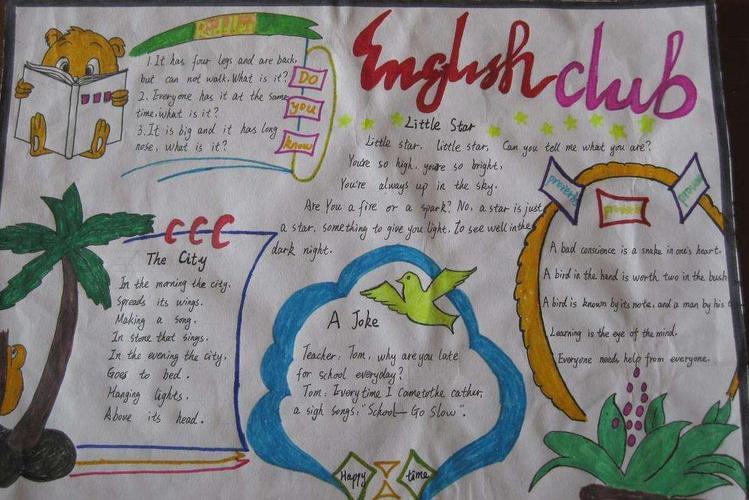 English club
1. It has four legs and are back,
but can not walk. What is it?
2. Everyone has it at the same
time, what is it?
3. It is big and it has long
nose, what is it?
DO
you
know
Little Star
Little star, little star, Can you tell me what you are?
You're so high, you're so bright,
You're always up in the sky.
Are You a fire or a spark? No, a star is just
a star, something to give you light, To see well in the
dark night.
The City
In the morning the city.
Spreads its wings.
Making a song.
In stone that sings.
In the evening the city.
Goes to bed.
Hanging lights.
Above its head.
A Joke
Teacher: Tom, why are you late
for school everyday?
Tom: Every time I cametothe cather,
a sigh songs: "School—Go Slow".
Happy time
proverb
A bad conscience is a snake in one's heart.
A bird in the hand is worth two in the bush
A bird is known by its note, and a man by his
Learning is the eye of the mind.
Everyone needs help from everyone.